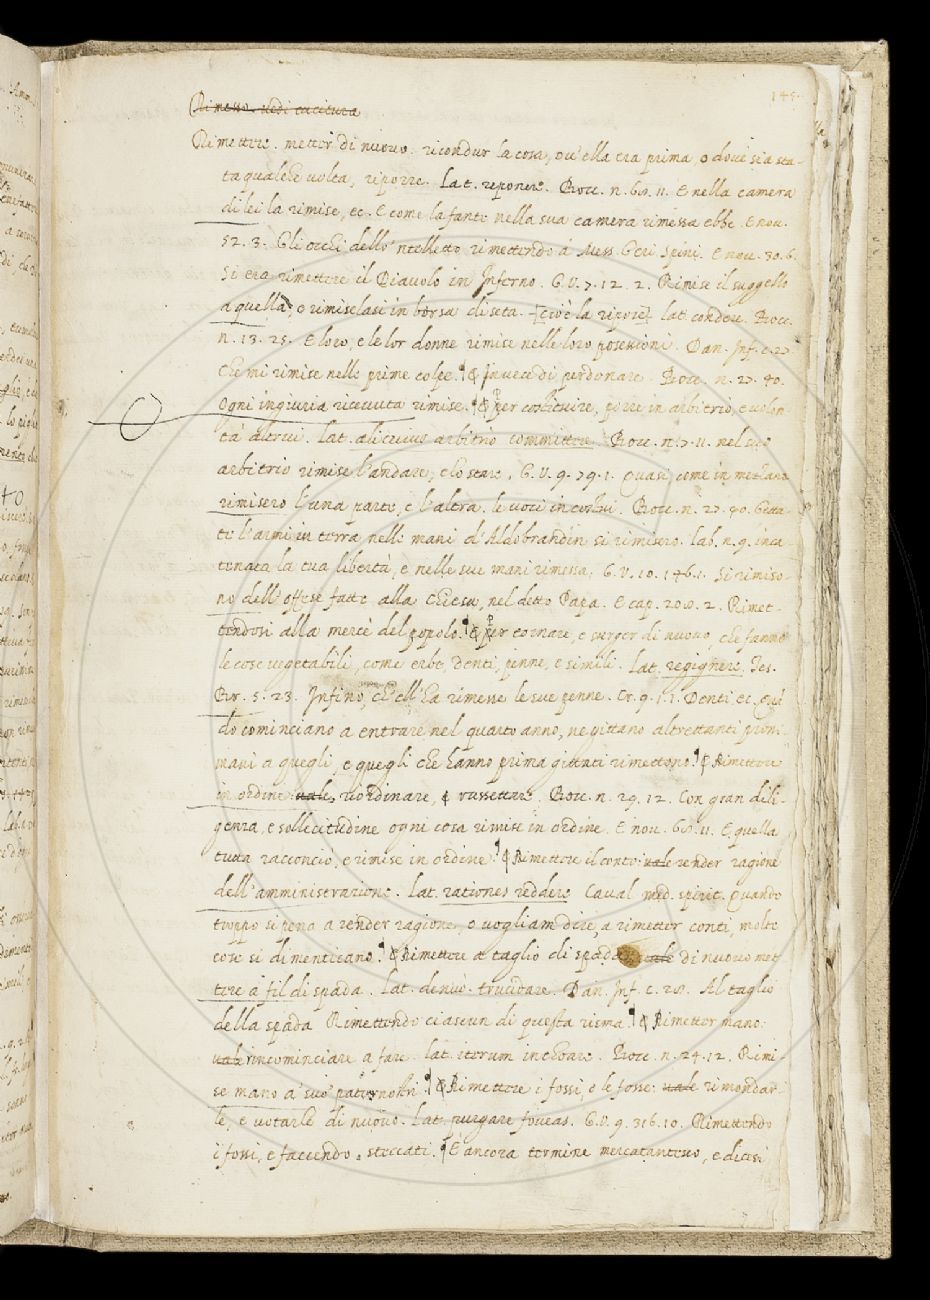 145.
Rimesso. vedi cucitura
Rimettere. metter di nuovo. ricondur la cosa, ov'ella era prima, o dove sia sta-
ta qualche volta, riporre. Lat. reponere. Bocc. n. 60. 11. E nella camera
di lei la rimise, ec. E come la fante nella sua camera rimessa ebbe. E nov.
52. 3. Gli occhi dello 'ntelletto rimettendo à Mess. Geri Spini. E nov. 30. 6.
Si era rimettere il Diavolo in Inferno. G. V. 7. 12. 2. Rimise il suggello
a quella, e rimiselasi in borsa di seta. [cioè la ripose] lat. condere. Bocc.
n. 13. 25. E loro, e le lor donne rimise nelle loro possessioni. Dan. Inf. c. 27
Che mi rimise nelle prime colpe. ¶ & Invece di perdonare. Bocc. n. 27. 40.
Ogni ingiuria ricevuta rimise. ¶ & per costituire, porre in arbitrio, e volon-
tà altrui. Lat. alicuius arbitrio committere. Bocc. n. 7. 11. nel suo
arbitrio rimise l'andare, e lo stare. G. V. 9. 79. 1. quasi come in mezzano
rimisero l'una parte, e l'altra le voci in costui. Bocc. n. 27. 40. Gitta-
te l'armi in terra, nelle mani d'Aldobrandin si rimisero. Lab. n. 9. inca-
tenata la tua libertà, e nelle sue mani rimessa. G. V. 10. 146. 1. Si rimiso-
no dell'offese fatte alla Chiesa, nel detto Papa. E cap. 208. 2. Rimet-
tendosi alla mercè del popolo. ¶ & per tornare, e surger di nuovo, che fanno
le cose vegetabili, come erbe, denti, penne, e simili. Lat. regignere. Tes.
Br. 5. 23. Infino, ch'ell'ha rimesse le sue penne. Cr. 9. 1. 1. Denti ec. qua
do cominciano a entrare nel quarto anno, ne gittano altrettanti prim-
mani a quegli, e quegli che hanno prima gittati rimettono. ¶ & Rimettere
in ordine: vale, riordinare, & rassettare. Bocc. n. 29. 12. Con gran dili-
genza, e sollecitudine ogni cosa rimise in ordine. E nov. 60. 11. E quella
tutta racconcio, e rimise in ordine. ¶ & Rimettere il conto: vale render ragione
dell'amministrazione. Lat. rationes reddere. Caval. med. spirit. quando
troppo si pena a render ragione, o vogliam dire, a rimetter conti, molte
cose si dimenticano. ¶ & Rimettere a taglio di spada vale di nuovo met-
tere à fil di spada. Lat. denuò trucidare. Dan. Inf. c. 28. Al taglio
della spada Rimettendo ciascun di questa risma. ¶ & Rimetter mano:
vale rincominciare a fare. lat. iterum inchoare. Bocc. n. 24. 12. Rimi-
se mano a' suo' paternostri. ¶ & Rimettere i fossi, e le fosse: vale rimondar-
le, e votarle di nuovo. Lat. purgare foveas. G. V. 9. 316. 10. Rimettendo
i fossi, e faccendo steccati. ¶ È ancora termine mercatantesco, e dicesi